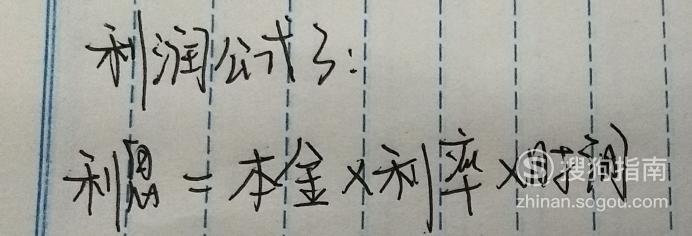 利润公式3:
利息=本金×利率×时间
搜狗指南
zhinan.sogou.com